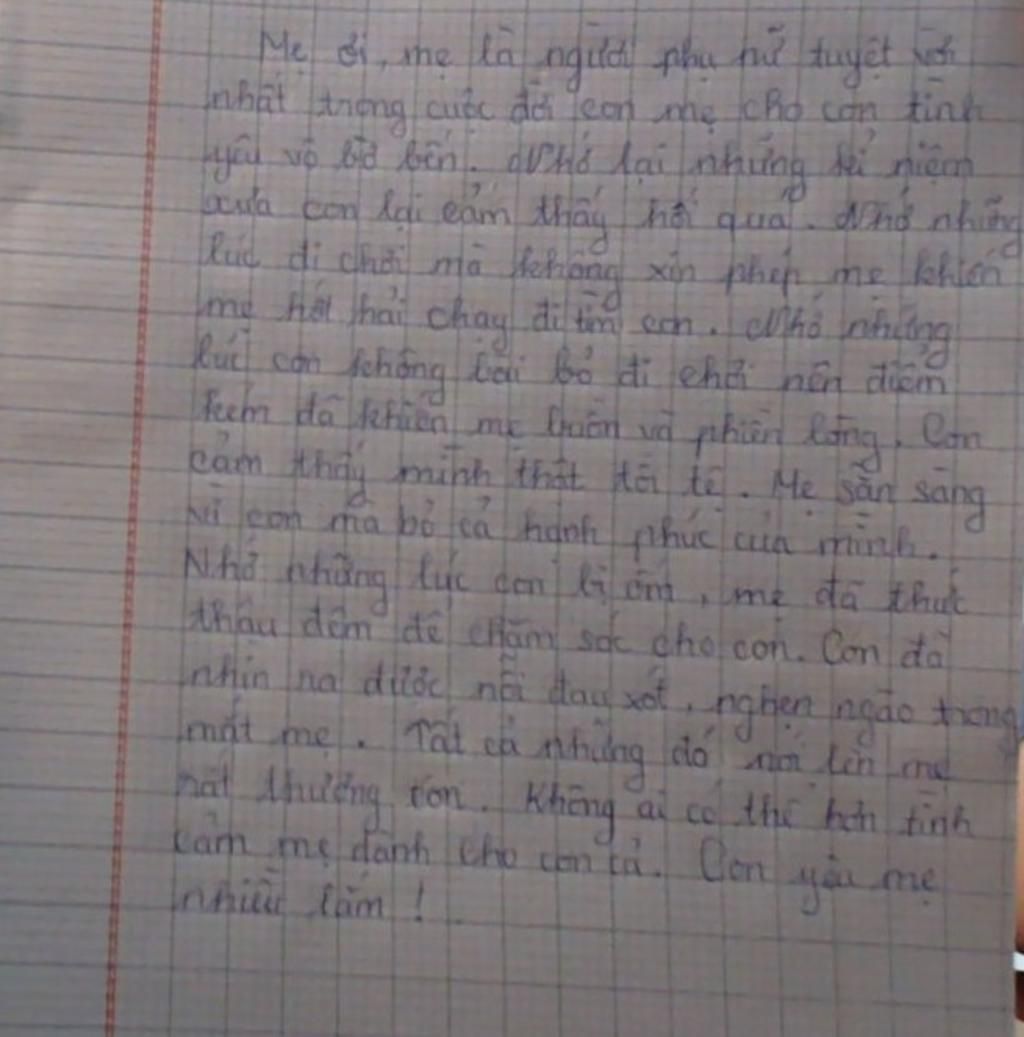 Mẹ ơi, mẹ là người phụ nữ tuyệt vời
nhất trong cuộc đời con mẹ cho con tình
yêu vô bờ bến. Nhớ lại những kỉ niệm
xưa con lại cảm thấy hối quá. Nhớ những
lúc đi chơi mà không xin phép mẹ khiến
mẹ hớt hải chạy đi tìm con. Nhớ những
lúc con không bài bỏ đi chơi nên điểm
kém đã khiến mẹ buồn và phiền lòng. Con
cảm thấy mình thật tồi tệ. Mẹ sẵn sàng
vì con mà bỏ cả hạnh phúc của mình.
Nhớ những lúc con bị ốm, mẹ đã thức
thâu đêm để chăm sóc cho con. Con đã
nhìn ra được nỗi đau xót, nghẹn ngào trong
mắt mẹ. Tất cả những đó nói lên mẹ
rất thương con. Không ai có thể hơn tình
cảm mẹ dành cho con cả. Con yêu mẹ
nhiều lắm!